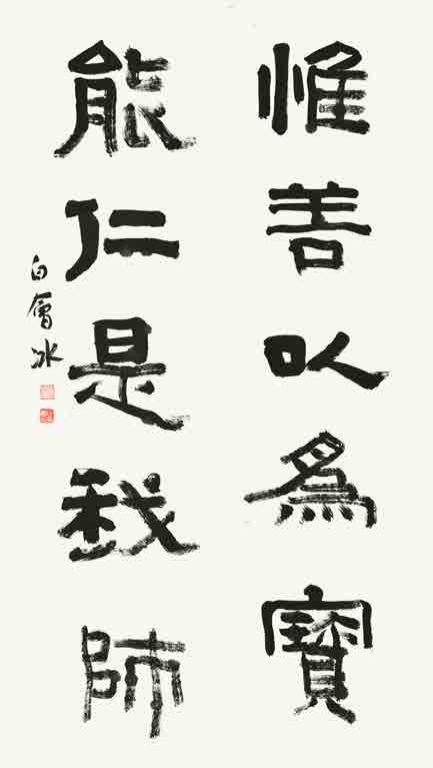 惟善以為寶
能仁是我師
白會冰